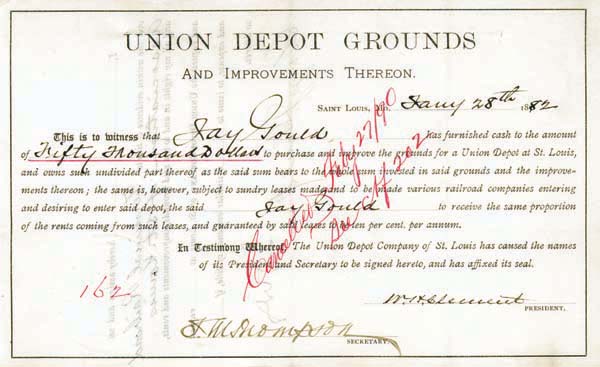 UNION DEPOT GROUNDS
AND IMPROVEMENTS THEREON.
SAINT LOUIS, MO. Jany 28th 1882
This is to witness that Jay Gould has furnished cash to the amount
of Fifty Thousand Dollars to purchase and improve the grounds for a Union Depot at St. Louis,
and owns such undivided part thereof as the said sum bears to the whole sum invested in said grounds and the improve-
ments thereon; the same is, however, subject to sundry leases made and to be made various railroad companies entering
and desiring to enter said depot, the said Jay Gould to receive the same proportion
of the rents coming from such leases, and guaranteed by said leases to be ten per cent. per annum.
In Testimony Whereof The Union Depot Company of St. Louis has caused the names
of its President and Secretary to be signed hereto, and has affixed its seal.
Cancelled Feby 27/90
See 202
162
PRESIDENT.
Thompson
SECRETARY.